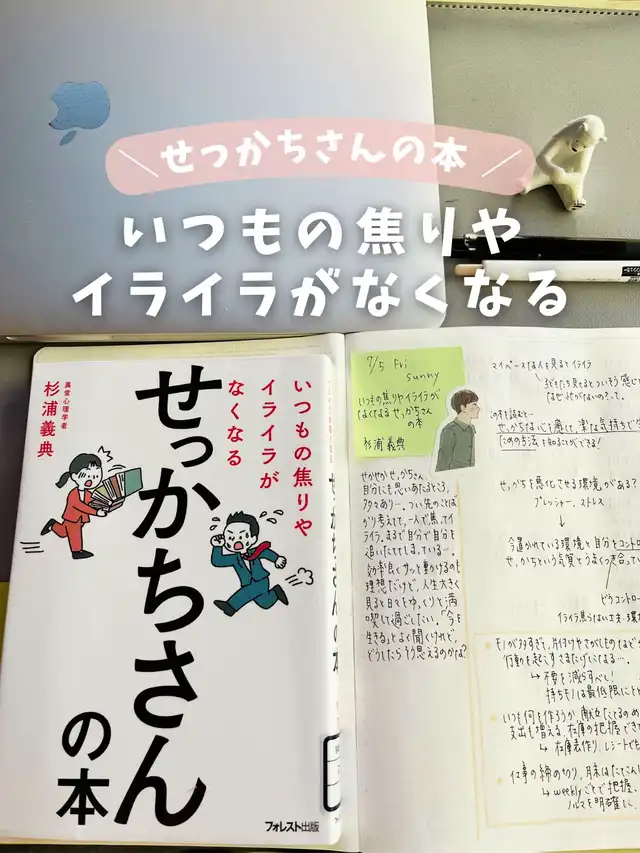 せっかちさんの本
いつもの焦りや
イライラがなくなる
いつもの焦りや
イライラが
なくなる
せっかちさん
の本
異常心理学者
杉浦義典
フォレスト出版
7/5 Fri
sunny
いつもの焦りやイライラが
なくなる せっかちさん
の本
杉浦義典
せかせか せっかちさん
自分にも思いあたるところ、
多々あり…。つい先のことば
かり考えて、一人で焦ってイ
ライラ。まるで自分で自分を
追いたててしまっている…。
効率良くサッと動けるのも
理想だけど、人生大きく
見ると日々をゆっくりと満
喫して過ごしたい。「今を
生きる」とよく聞くけれど、
どうしたらそう思えるのかな?
マイペースな人を見るとイライラ
この本を読むと…
せっかちな心を癒して、楽な気持ちで
ための方法を知ることができる!
せっかちを悪化させる環境がある?
プレッシャー、ストレス
↓
今置かれている環境と自分を
せっかちという気質とうまくつき合って
モノが多すぎて、片付けやさがしものなど
行動を起こすさまたげになる…。
→ 不要を減らすべし!
持ちモノは最低限に
いつも何を作ろうか 献立たてるの
支出も増える、在庫の把握
→ 在庫表作り、レシート
仕事の締め切り、月末は
→ weeklyごとで把握、
ノルマを明確